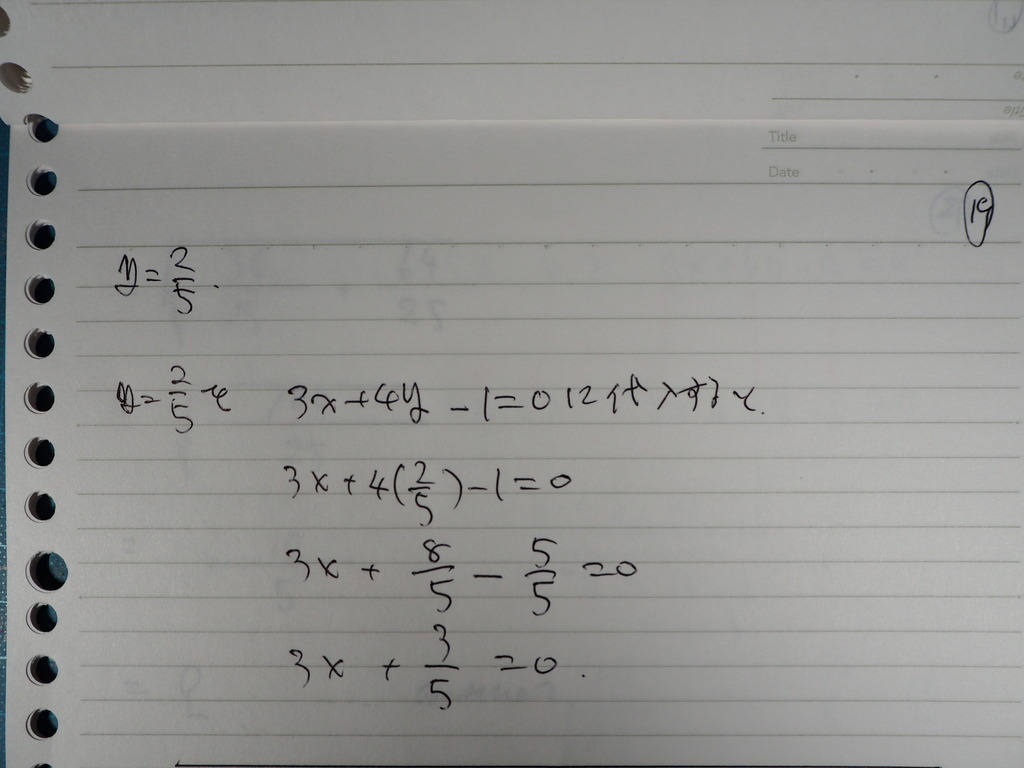 Title
Date
19
y = 2/5.
y = 2/5 を 3x + 4y - 1 = 0 に代入すると.
3x + 4(2/5) - 1 = 0
3x + 8/5 - 5/5 = 0
3x + 3/5 = 0.